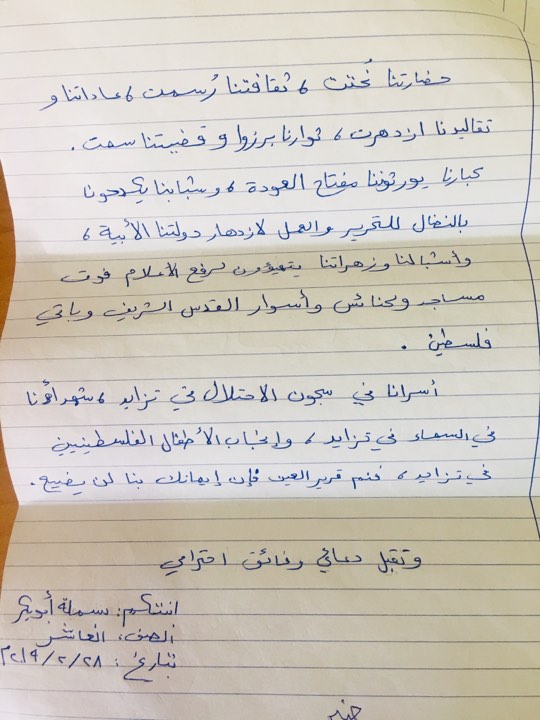 حضارتنا نُحتت ، ثقافتنا رُسمت ، عاداتنا و
تقاليدنا ازدهرت ، ثوارنا برزوا و قضيتنا سمت .
كبارنا يورثوننا مفتاح العودة ، وشبابنا يكدحون
بالنضال للتحرير والعمل لازدهار دولتنا الأبية ،
وأشبالنا وزهراتنا يتهيؤون لرفع الأعلام فوق
مساجد وكنائس وأسوار القدس الشريف وباقي
فلسطين .
أسرانا في سجون الاحتلال في تزايد ، شهداؤنا
في السماء في تزايد ، وإنجاب الأطفال الفلسطينيين
في تزايد ، فنم قرير العين فإن إيمانك بنا لن يضيع .
وتقبل دعائي وفائق احترامي
ابنتكم : سملة أبوبكر
الصف : العاشر
بتاريخ : ٢٠١٩/٢/٢٨م